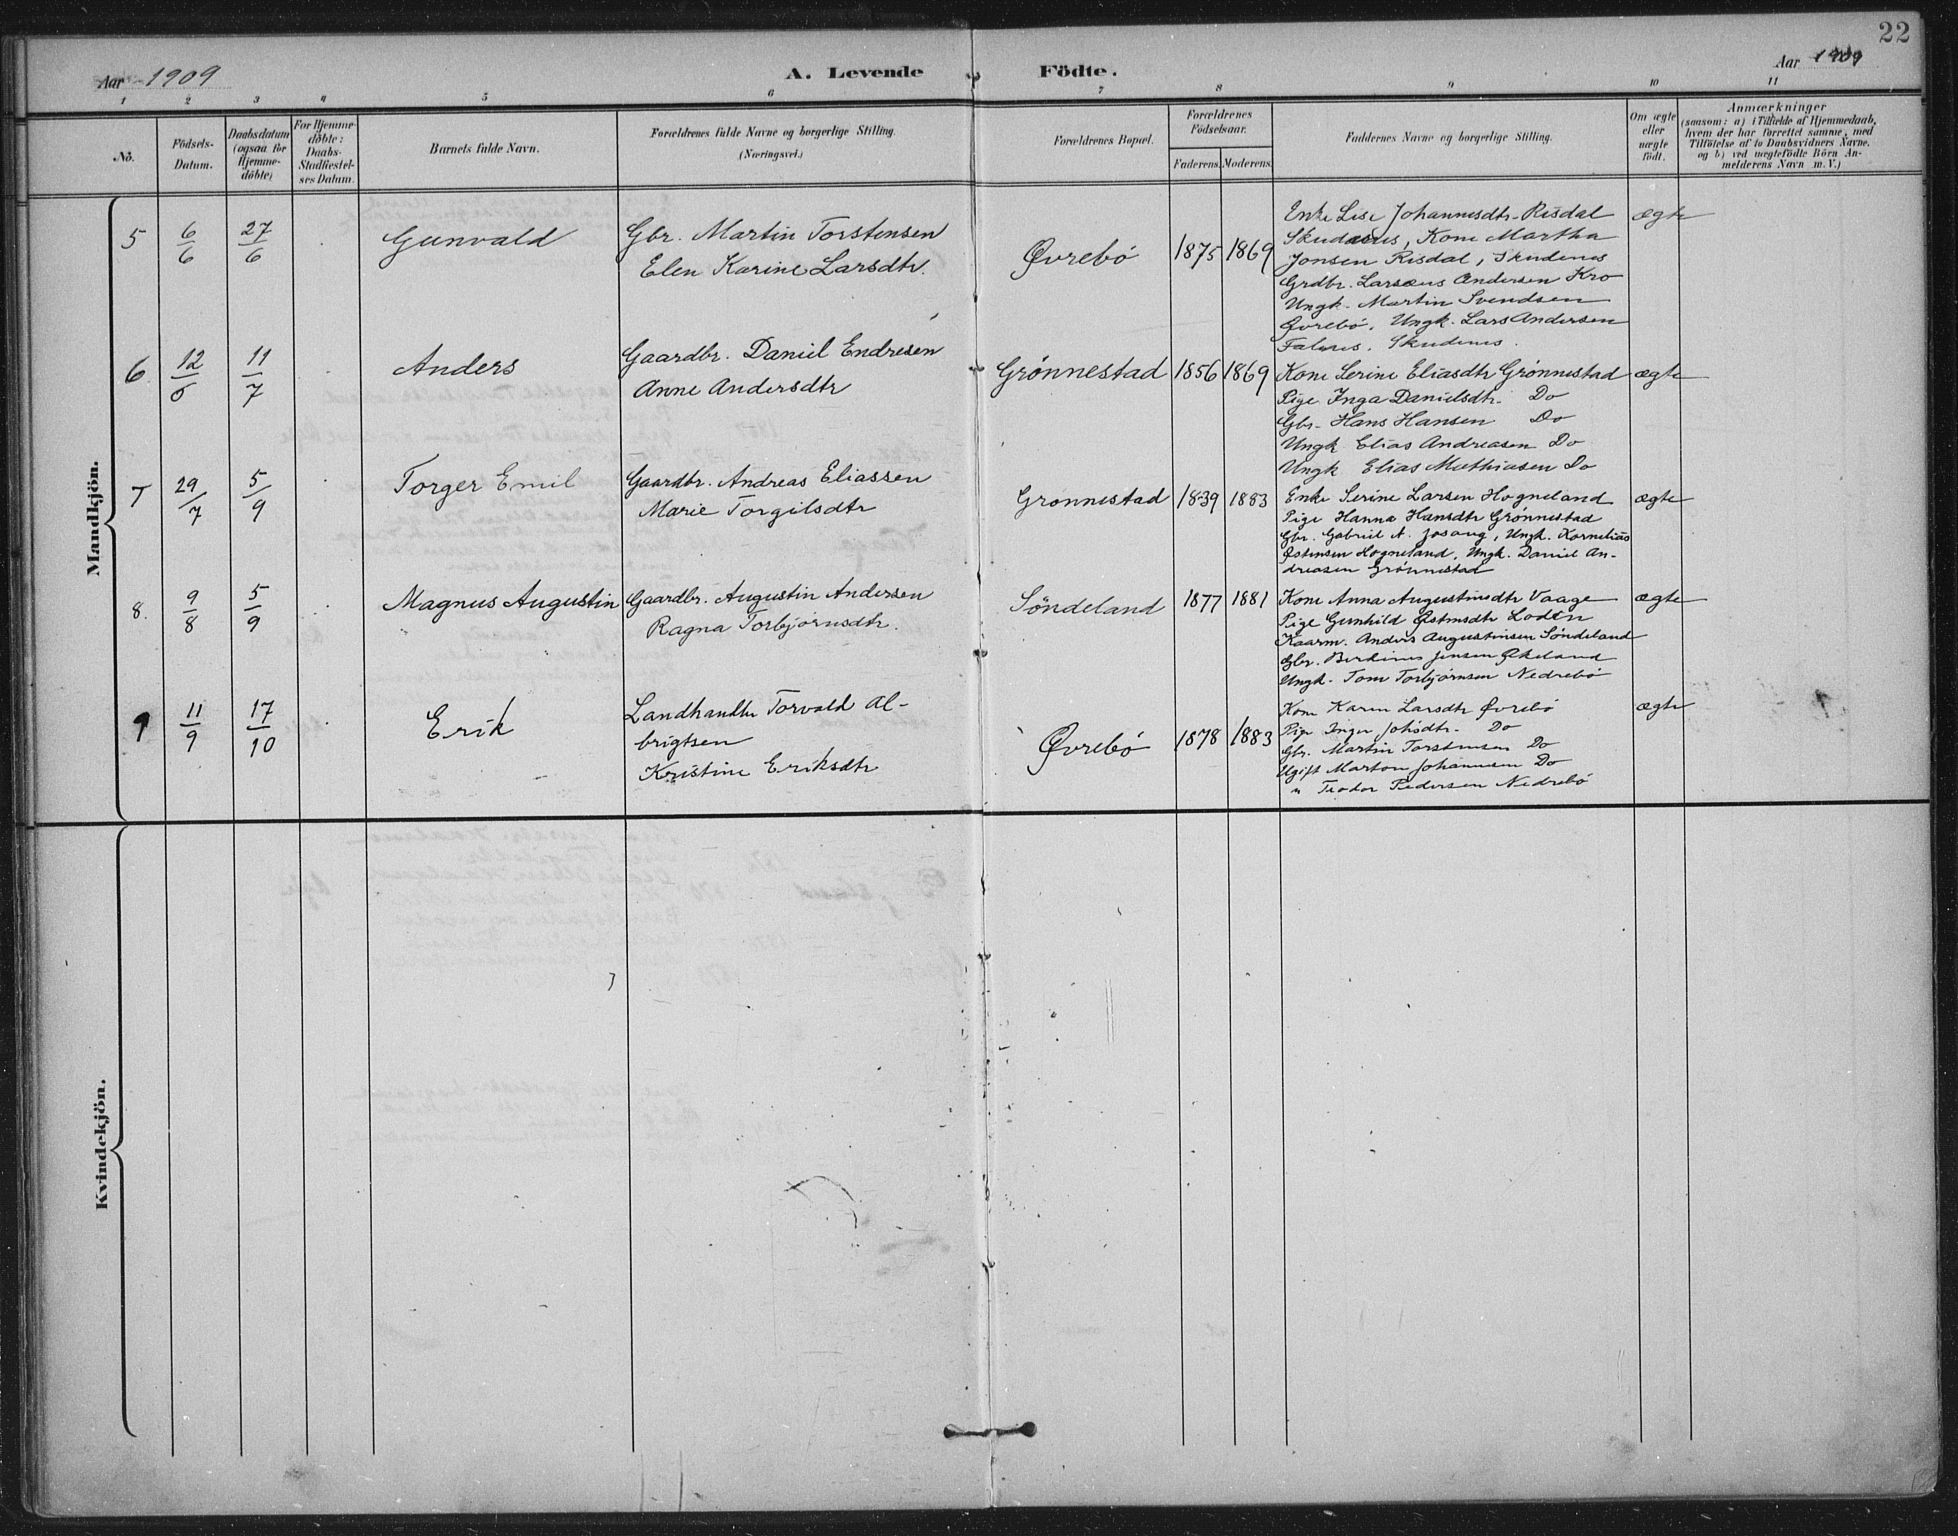 22
Aar 1909
A. Levende Födte.
Aar 1909
1 2 3 4 5 6 7 8 9 10 11
No.
Födsels-
Datum.
Daabsdatum
(ogsaa for
Hjemme-
döbte)
For Hjemme-
döbte:
Daabs-
Stadfæstel-
ses Datum.
Barnets fulde Navn.
Forældrenes fulde Navne og borgerlige Stilling.
(Næringsvei.)
Forældrenes Bopæl.
Forældrenes
Födselsaar.
Faderens. Moderens.
Faddernes Navne og borgerlige Stilling.
Om ægte
eller
uægte
födt.
Anmærkninger
(saasom: a) i Tilfælde af Hjemmedaab,
hvem der har forrettet samme, med
Tilföielse af to Daabsvidners Navne.
og b) ved uægtefödte Börn An-
melderens Navn m. V.)
Mandkjön.
5
6/6
27/6
Gunvald
Gbr. Martin Torstensen
Elen Karine Larsdtr.
Øvrebö
1875 1869
Enke Lise Johannesdtr. Risdal
Skudenes, Kone Martha
Jonsen Risdal, Skudenes
Grdbr. Larsæus Andersen Kro
Ungk. Martin Svendsen
Øvrebö, Ungk. Lars Andersen
Falnes, Skudenes.
ægte
6
12/6
11/7
Anders
Gaardbr. Daniel Endresen
Anne Andersdtr
Grønnestad
1856 1869
Kone Serine Eliasdtr Grønnestad
Pige Inga Danielsdtr. Do
Gbr. Hans Hansen Do
Ungk Elias Andreasen Do
Ungk Elias Mathiasen Do
ægte
7
29/7
5/9
Torger Emil
Gaardbr. Andreas Eliassen
Marie Torgilsdtr
Gronnestad
1839 1883
Enke Serine Larsen Hogneland
Pige Hanna Hansdtr Grønnestad
Gbr. Gabriel A. Josang, Ungk. Kornelius
Østensen Hogneland, Ungk. Daniel An-
dreasen Grönnestad
ægte
8.
9/8
5/9
Magnus Augustin
Gaardbr. Augustin Andersen
Ragna Torbjørnsdtr.
Søndeland
1877 1881
Kone Anna Augustinsdtr Vaage
Pige Gunhild Østensdtr Loden
Kaarm. Anders Augustinsen Søndeland
Gbr. Jensen Økeland
Ungk. Tom Torbjørnsen Nedrebö
ægte
9
11/9
17/10
Erik
Landhandler Torvald Al-
brigtsen
Kristine Eriksdtr
Øvrebö
1878 1883
Kone Karen Larsdtr Øvrebö
Pige Inger Johsdtr. Do
Gbr. Martin Torstensen Do
Ugift Marton Johannesen Do
" Teodor Pedersen Nedrebö
ægte
Kvindekjön.